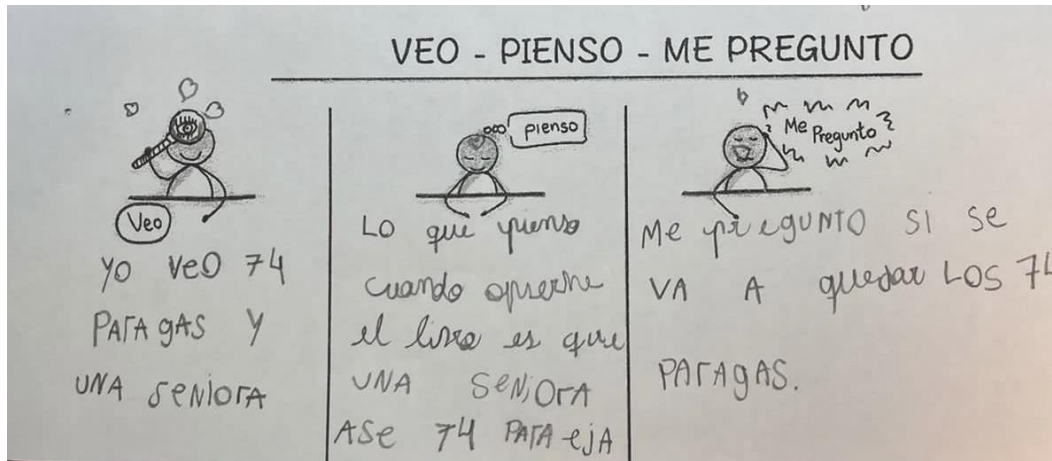 VEO - PIENSO - ME PREGUNTO
Veo
yo veo 74
PArA gAS y
UNA seNiorA
pienso
Lo que pienso
cuando
el libro es que
UNA SeNiOrA
ASe 74 PArA ejA
Me Pregunto
Me preguNTO SI se
VA A quedar LOS 74
PArAgAS.